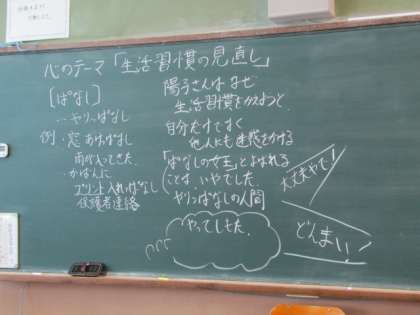 心のテーマ「生活習慣の見直し」
[ぱなし]
…やりっぱなし
例・窓あけぱなし
雨が入ってきた
・かばんに
プリント入れっぱなし
保護者連絡
陽子さんはなぜ
生活習慣をかえようと、
自分だけでなく
他人にも迷惑をかける
「ぱなしの女王」とよばれる
ことは いやでした
やりっぱなしの人間
やってしもた。
大丈夫やで!
どんまい!